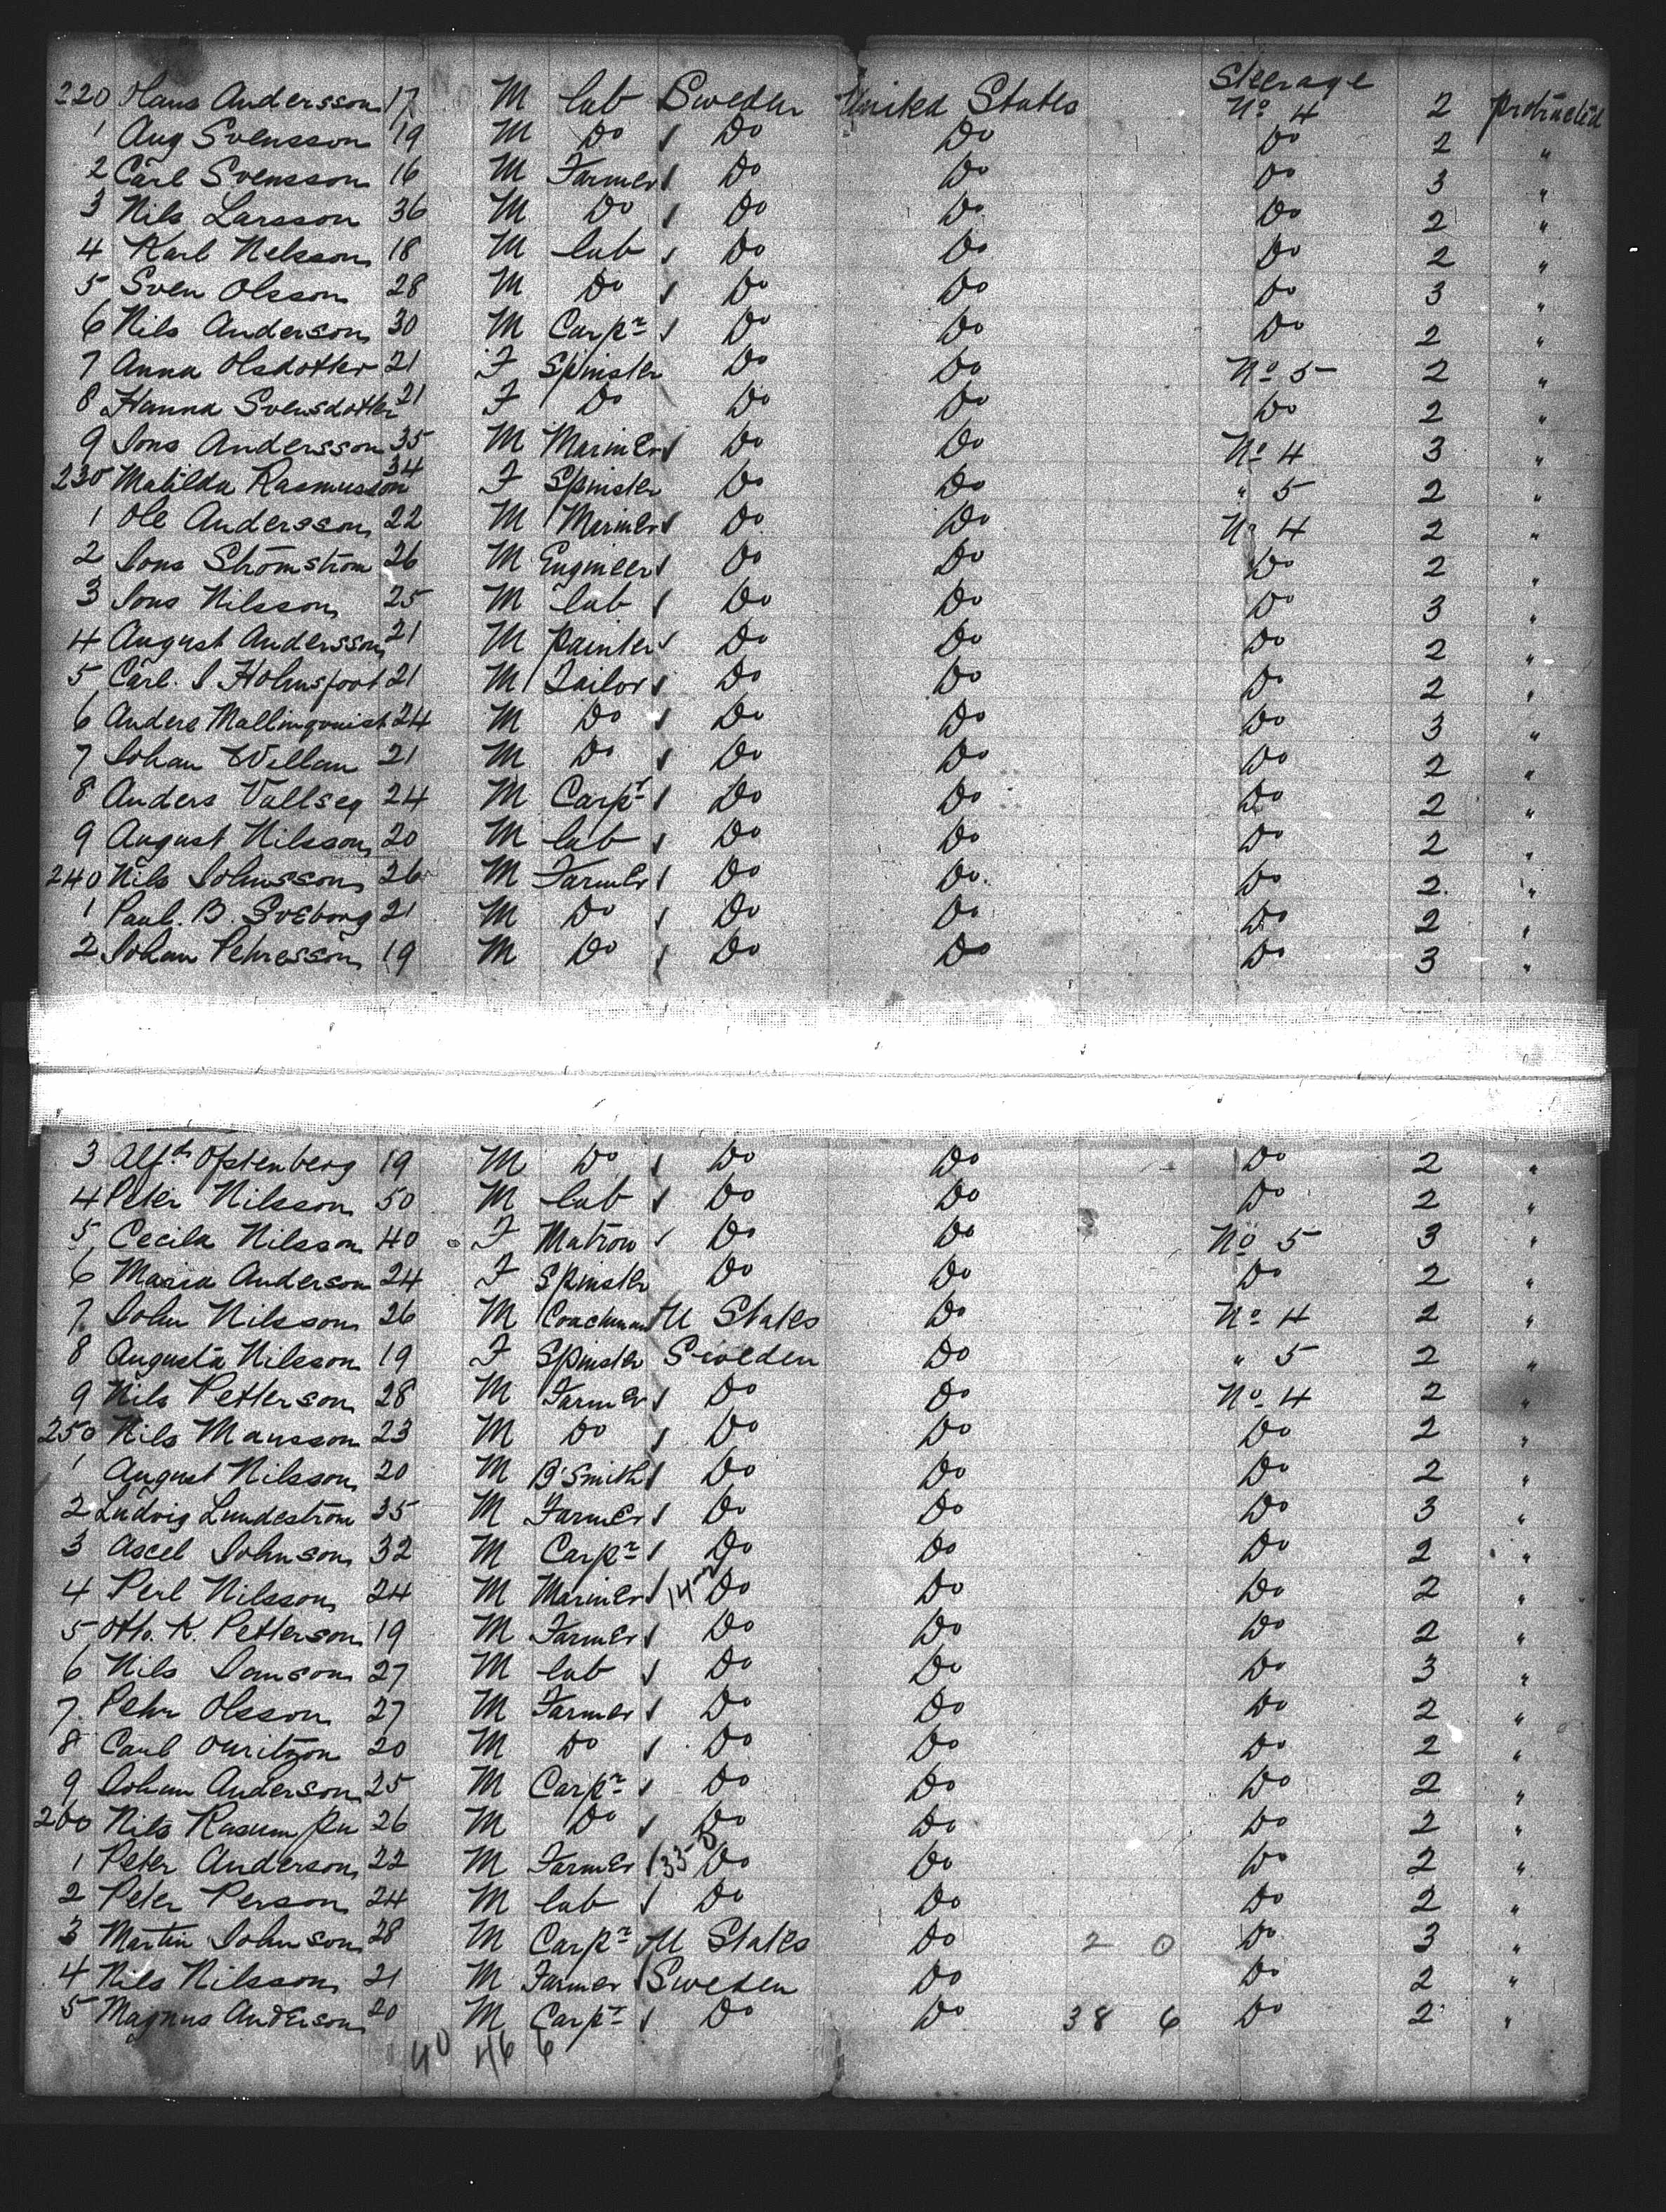 Steerage
220 Hans Andersson 17 M lab Sweden United States No 4 2 protracted
1 Aug Svensson 19 M Do Do Do Do 2 "
2 Carl Svensson 16 M Farmer Do Do Do 3 "
3 Nils Larsson 36 M Do Do Do Do 2 "
4 Karl Nelsson 18 M lab Do Do Do 2 "
5 Sven Olsson 28 M Do Do Do Do 3 "
6 Nils Anderson 30 M Carpr Do Do Do 2 "
7 Anna Olsdotter 21 F Spinster Do Do No 5 2 "
8 Hanna Svensdotter 21 F Do Do Do Do 2 "
9 Jons Andersson 35 M Mariner Do Do No 4 3 "
230 Matilda Rasmusson 34 F Spinster Do Do " 5 2 "
1 Ole Andersson 22 M Mariner Do Do No 4 2 "
2 Jons Stromstrom 26 M Engineer Do Do Do 2 "
3 Jons Nilsson 25 M lab Do Do Do 3 "
4 August Andersson 21 M painter Do Do Do 2 "
5 Carl. J. 21 M Sailor Do Do Do 2 "
6 Anders Mallinqvist 24 M Do Do Do Do 3 "
7 Johan Willan 21 M Do Do Do Do 2 "
8 Anders Vallseq 24 M Carpr Do Do Do 2 "
9 August Nilsson 20 M lab Do Do Do 2 "
240 Nils Johnsson 26 M Farmer Do Do. Do 2. "
1 Paul. B. Sveborg 21 M Do Do Do Do 2 "
2 Johan Pehresson 19 M Do Do Do Do 3 "
3 Alfd Ofstenberg 19 M Do Do Do Do 2 "
4 Peter Nilsson 50 M lab Do Do Do 2 "
5 Cecila Nilsson 40 F Matron Do Do No 5 3 "
6 Maria Anderson 24 F Spinster Do Do Do 2 "
7 John Nilsson 26 M Coachman U States Do No 4 2 "
8 Augusta Nilsson 19 F Spinster Sweden Do " 5 2 "
9 Nils Petterson 28 M Farmer Do Do No 4 2 "
250 Nils Mansson 23 M Do Do Do Do 2 "
1 August Nilsson 20 M B'Smith Do Do Do 2 "
2 Ludvig Lundestrom 35 M Farmer Do Do Do 3 "
3 Ascel Johnson 32 M Carpr Do Do Do 2 "
4 Perl Nilsson 24 M Mariner 14 Do Do Do 2 "
5 Otto. K. Petterson 19 M Farmer Do Do Do 2 "
6 Nils Jansson 27 M lab Do Do Do 3 "
7. Pehr Olsson 27 M Farmer Do Do Do 2 "
8 Carl Ouritzon 20 M Do Do Do Do 2 "
9 Johan Anderson 25 M Carpr Do Do Do 2 "
260 Nils 26 M Do Do Do Do 2 "
1 Peter Anderson 22 M Farmer 33 Do Do Do 2 "
2 Peter Person 24 M lab Do Do Do 2 "
3 Martin Johnson 28 M Carpr U States Do 2 0 Do 3 "
4 Nils Nilsson 21 M Farmer Sweden Do Do 2 "
5 Magnus Anderson 20 M Carpr Do Do 38 6 Do 2 "
40 46 6